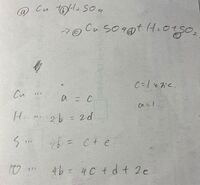 ⓐ Cu + ⓑ H₂SO₄
→ ⓒ CuSO₄ + ⓓ H₂O + ⓔ SO₂
Cu … a = c
c = 1
H … 2b = 2d
a = 1
S … b = c + e
O … 4b = 4c + d + 2e